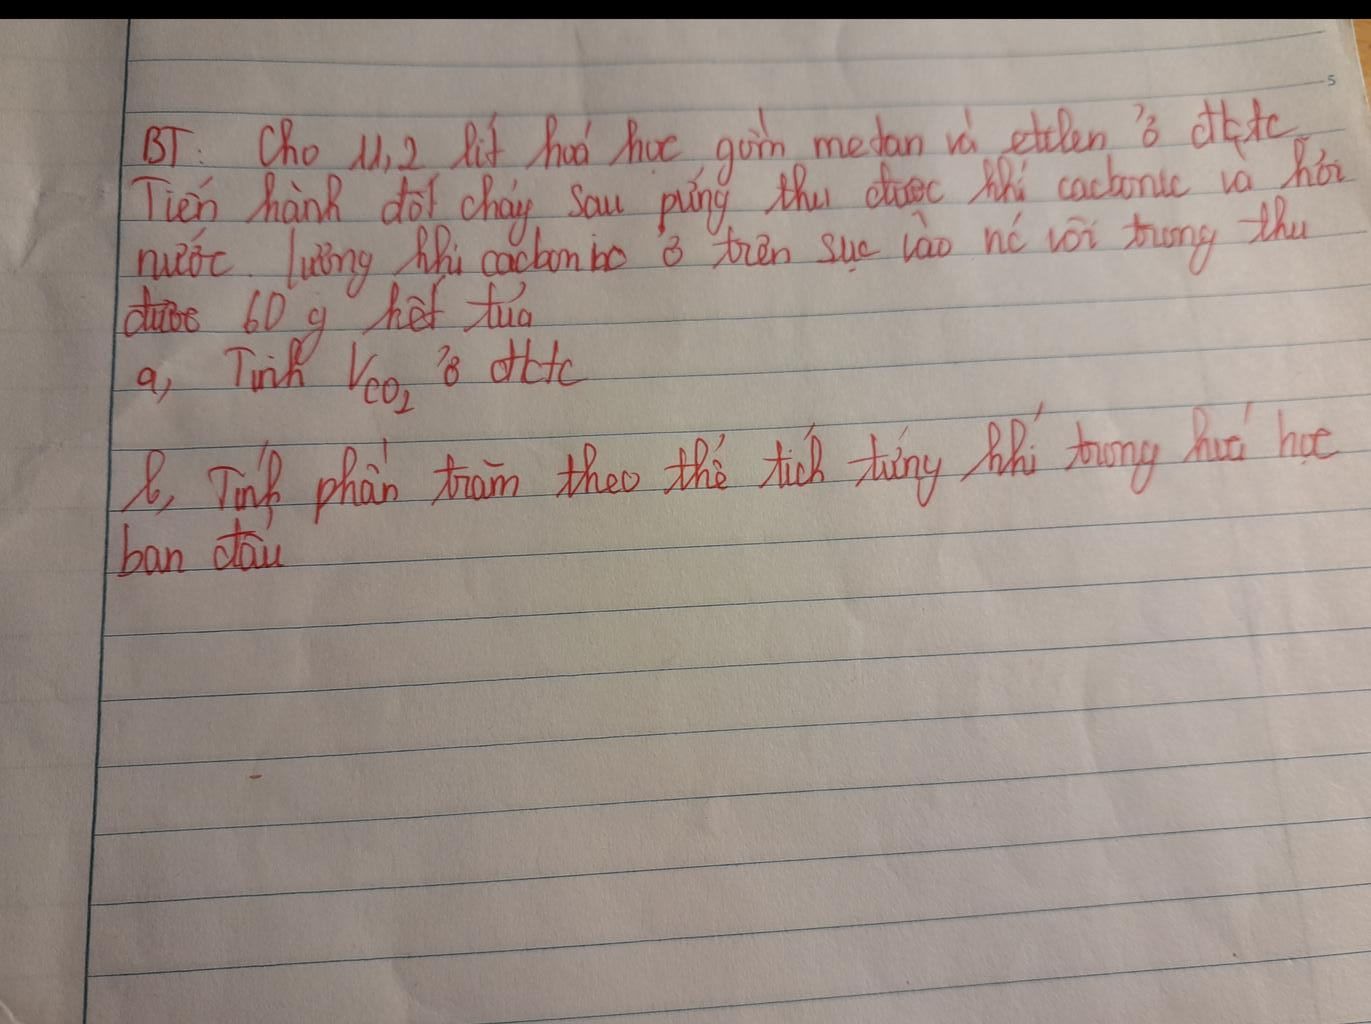 5
BT: Cho 11,2 lít hoá học gồm metan và etilen ở đktc.
Tiến hành đốt cháy sau pứng thu được khí cacbonic và hơi
nước. lượng khí cacbonic ở trên sục vào nc vôi trong thu
được 60 g kết tủa
a, Tính VCO2 ở đktc
b, Tính phần trăm theo thể tích từng khí trong hoá học
ban đầu